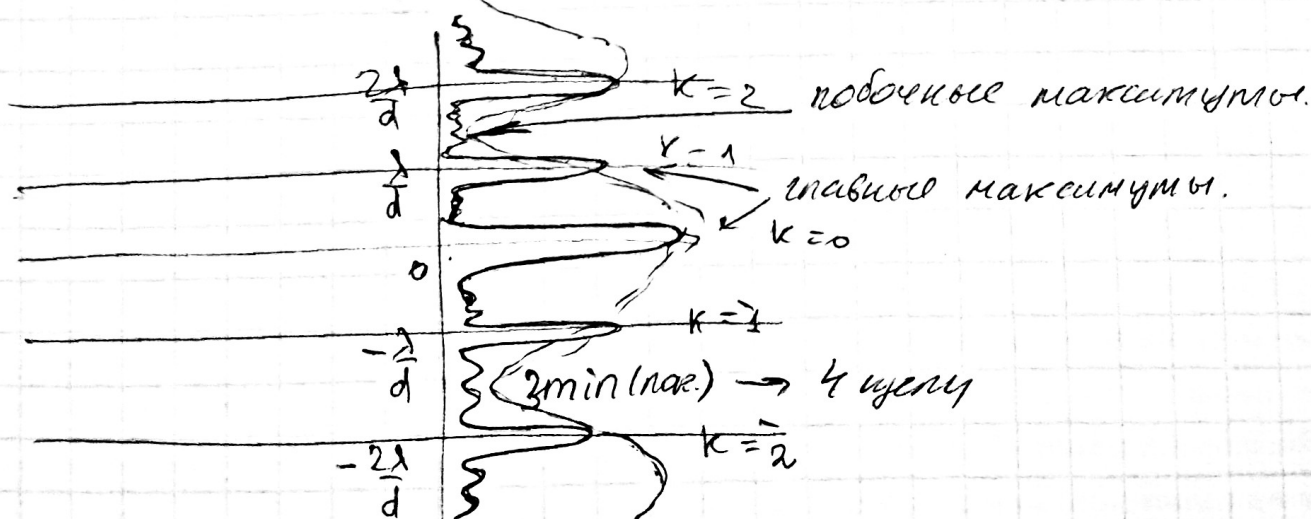 2λ/d K=2 побочные максимумы.
λ/d K=1
главные максимумы.
K=0
0
-λ/d K=-1
3min(лок.) → 4 щели
-2λ/d K=-2